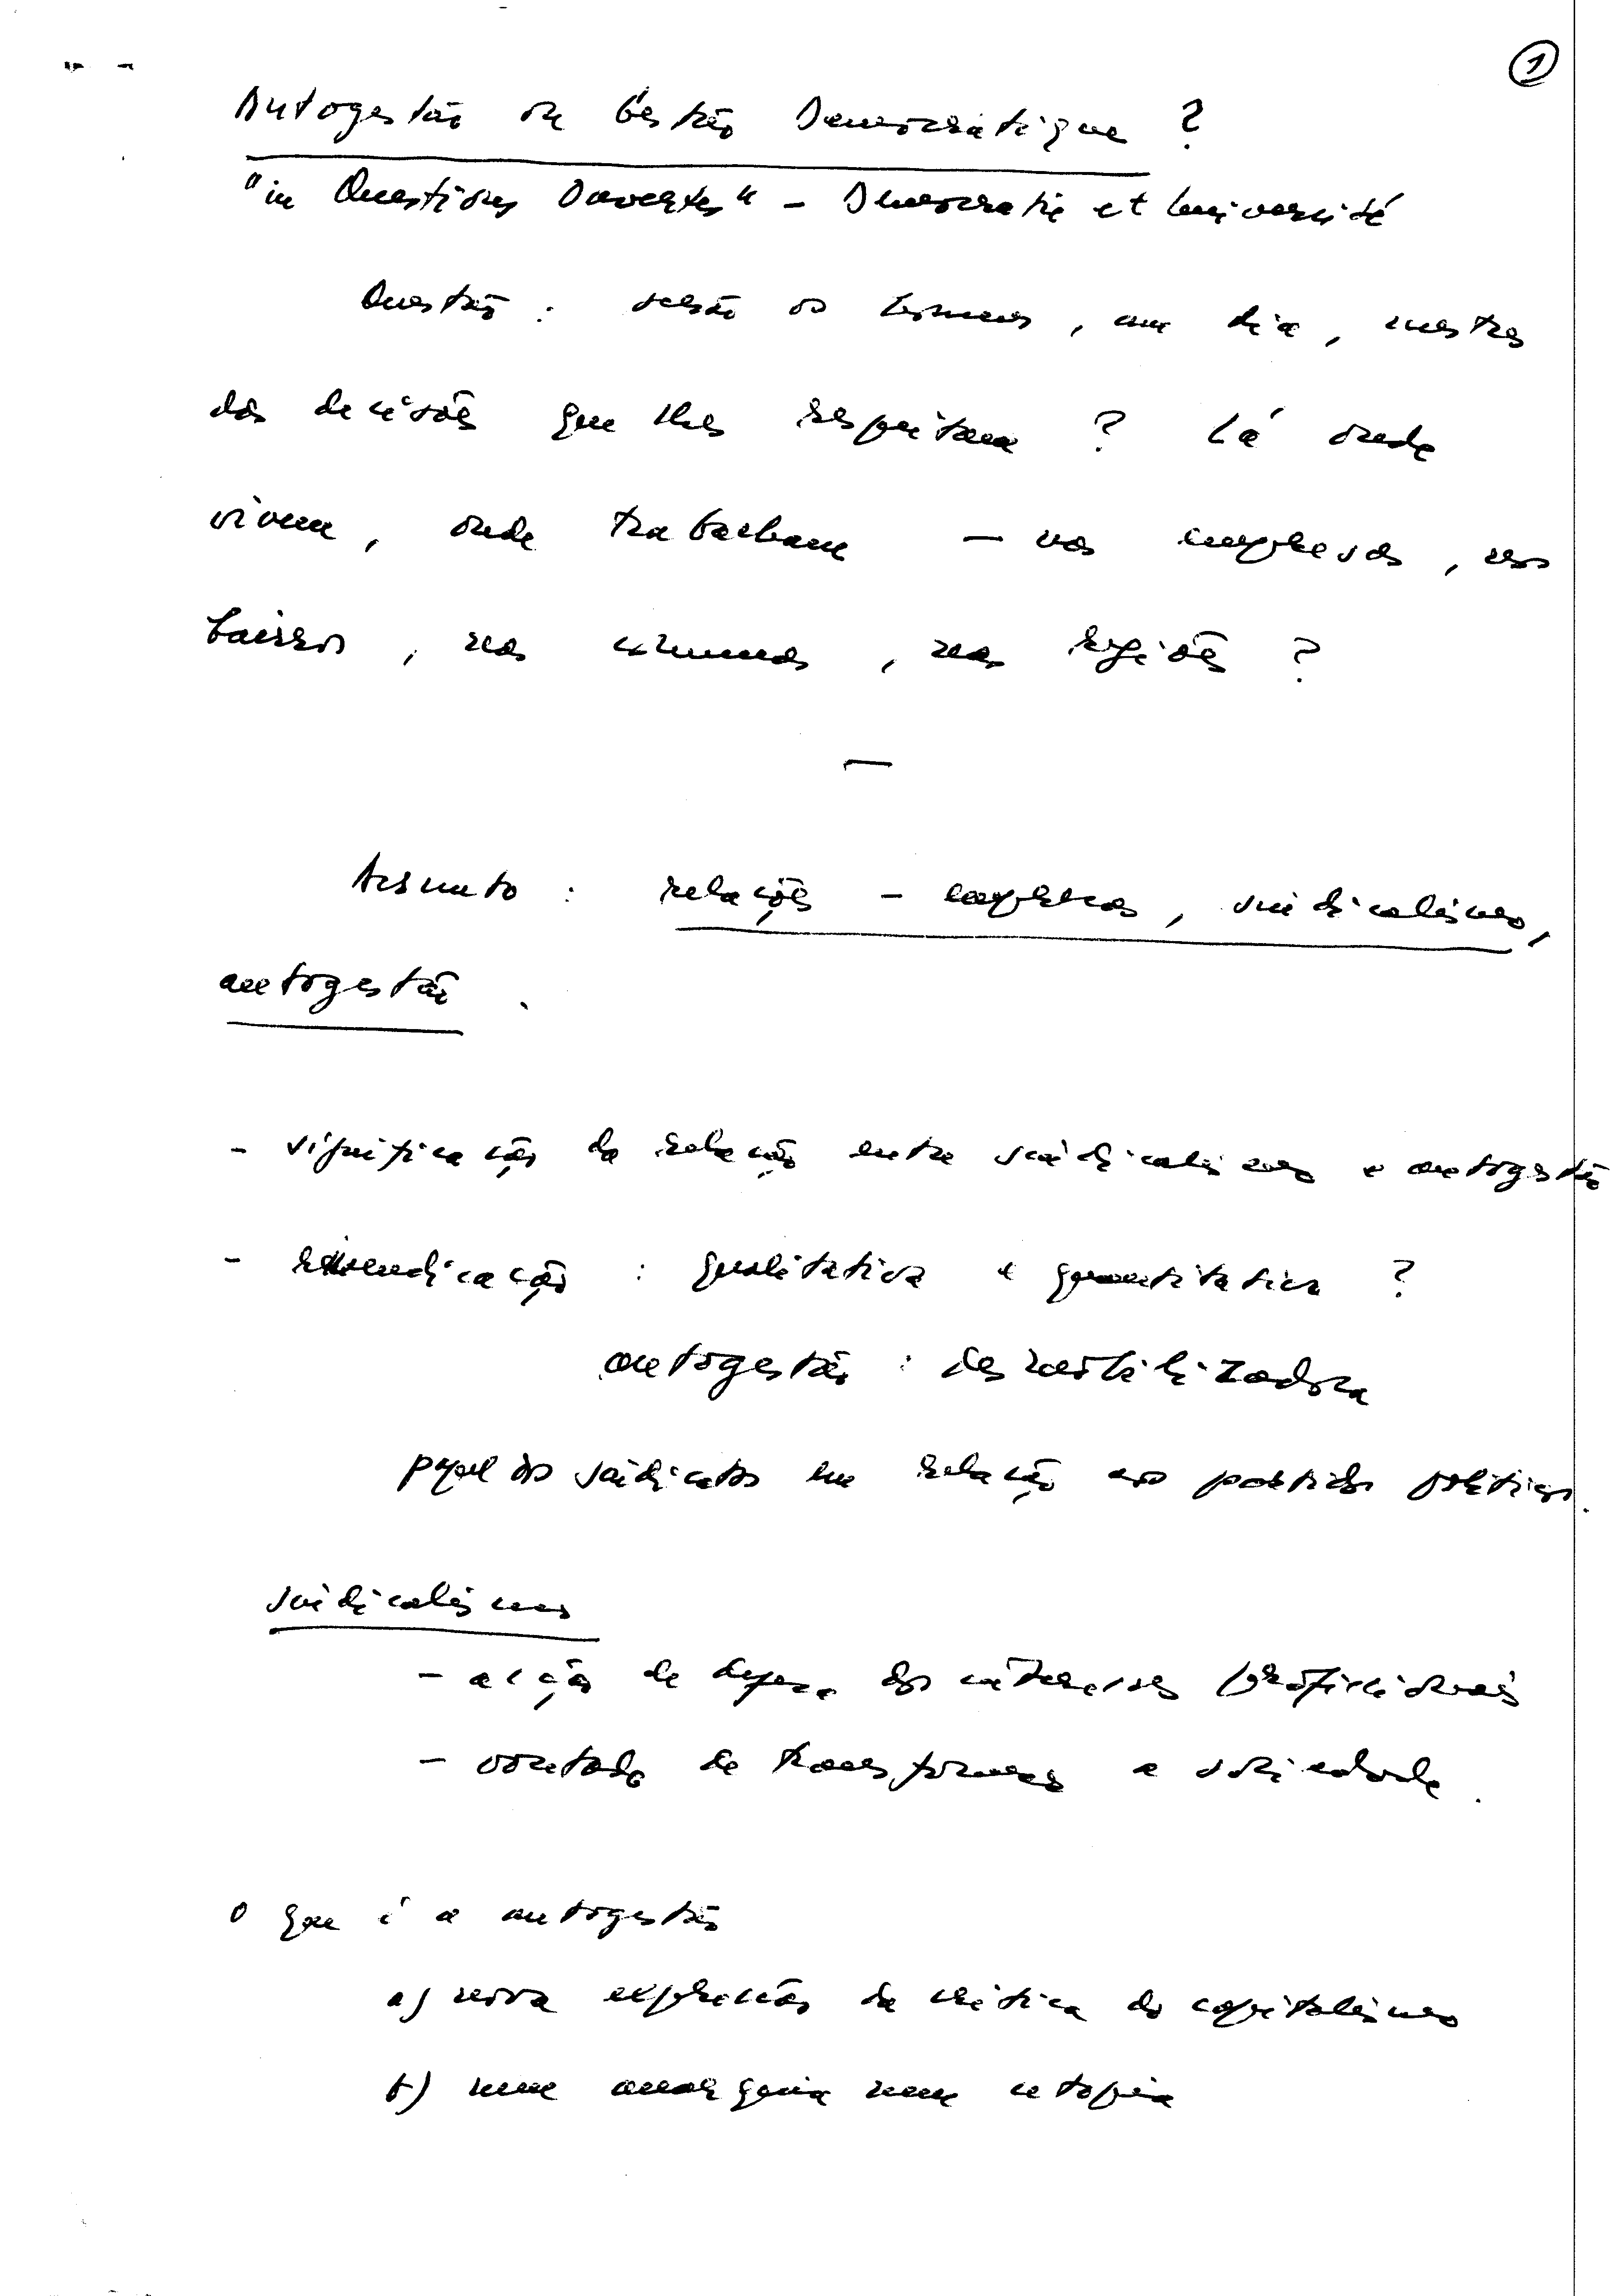 1
Autogestão ou Gestão Democratique ?
"in Questions Ouvertes" - Democratie et Université
Questão : serão os homens, um dia, mestres
das decisões que lhes respeitam ? Lá onde
vivem, onde trabalham - nas empresas, nos
bairros, nas comunas, nas regiões ?
—
Assunto : relações - empresas, sindicalismo,
autogestão.
- significação da relação entre sindicalismo e autogestão
- reivindicação : qualitativa e quantitativa ?
autogestão : desmobilizadora
papel dos sindicatos em relação aos partidos políticos.
sindicalismo
- acção de defesa dos interesses profissionais
- vontade de transformar a sociedade.
O que é a autogestão
a) nova expressão da crítica do capitalismo
b) nem anarquia nem utopia